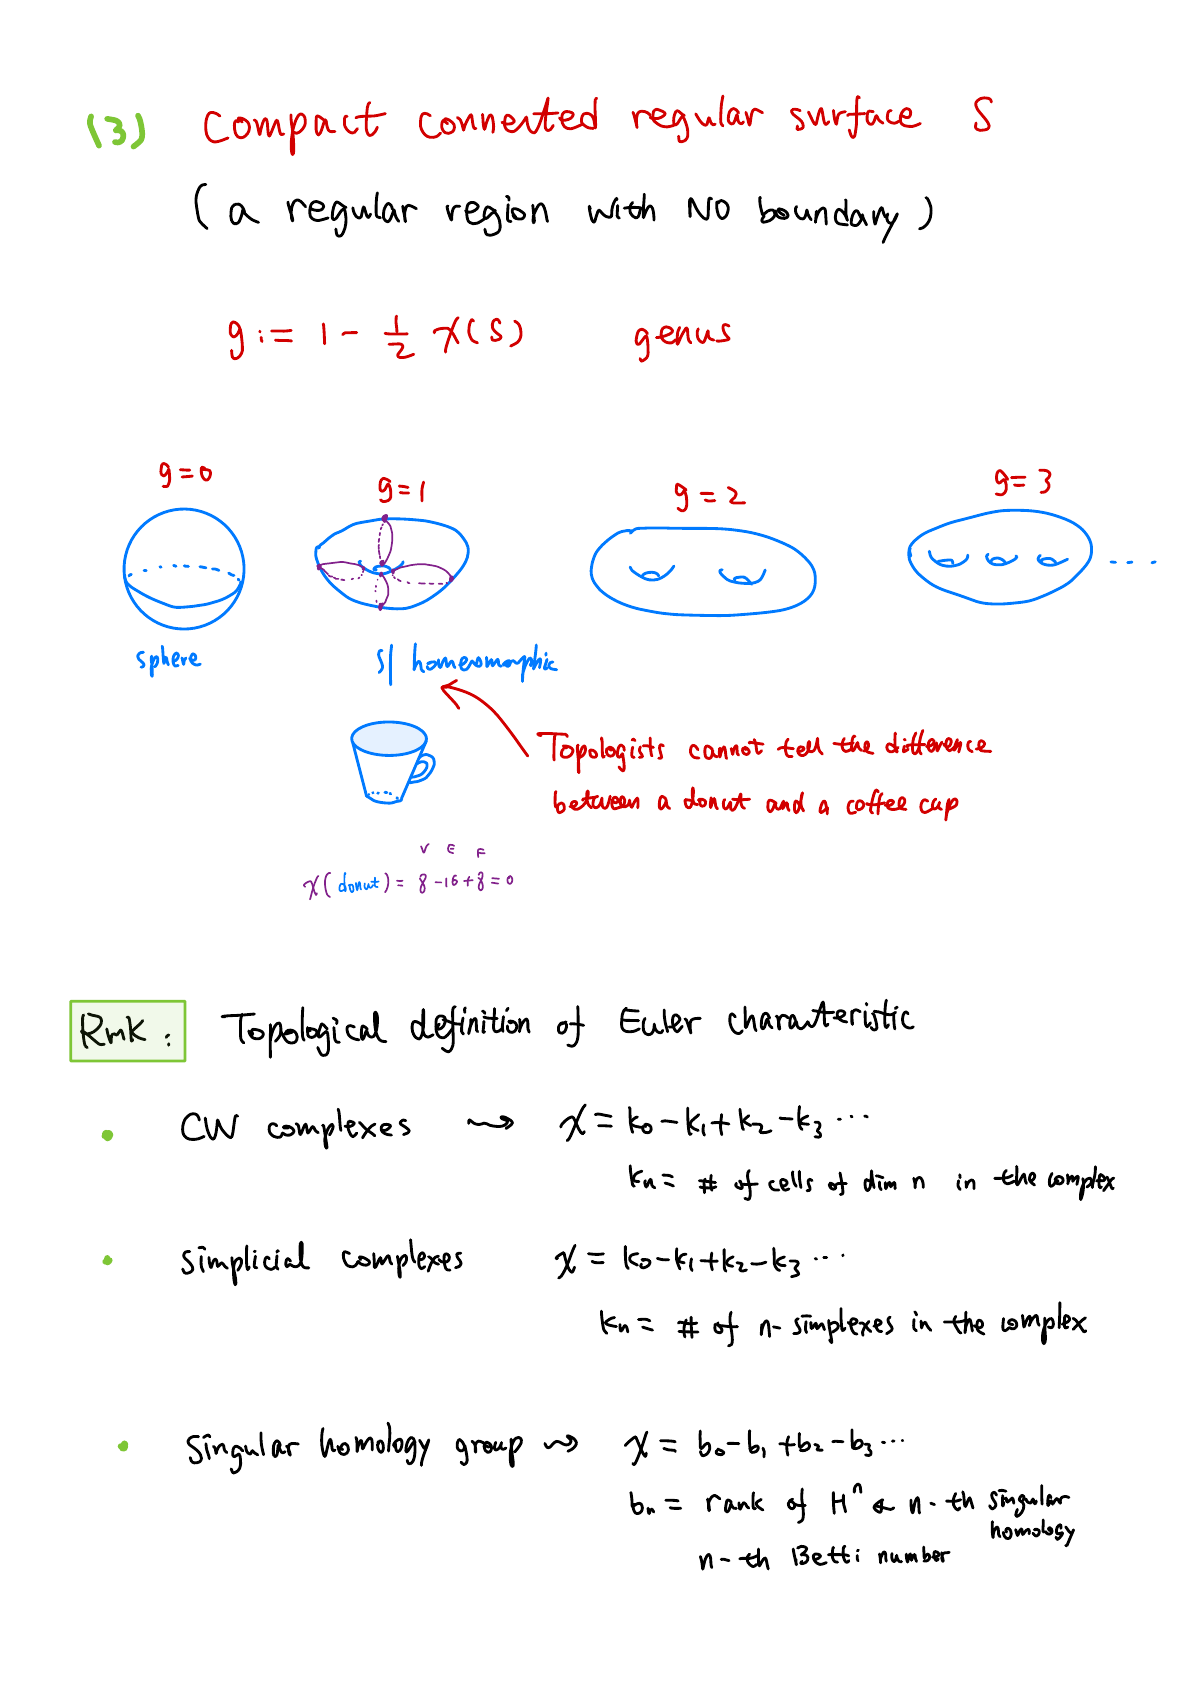 (3) Compact connected regular surface S
(a regular region with NO boundary)
g := 1 - 1/2 χ(S) genus
g=0 g=1 g=2 g=3
....
sphere
S| homeomorphic
Topologists cannot tell the difference
between a donut and a coffee cup
V E F
χ(donut) = 8 - 16 + 8 = 0
Rmk: Topological definition of Euler characteristic
• CW complexes ⇝ χ = k₀ - k₁ + k₂ - k₃ ...
kₙ = # of cells of dim n in the complex
• simplicial complexes χ = k₀ - k₁ + k₂ - k₃ ...
kₙ = # of n-simplexes in the complex
• Singular homology group ⇝ χ = b₀ - b₁ + b₂ - b₃ ...
bₙ = rank of Hⁿ ← n-th singular
homology
n-th Betti number